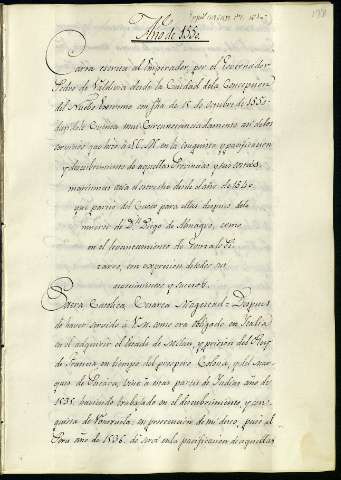 Año de 1550.
Carta escrita al Emperador, por el Governador
Pedro de Valdivia desde la Ciudad de la Concepcion
del Nuebo Extremo con fha de 15 de octubre de 1550.
dandole Cuenta mui Circunstanciadamente asi de los
servicios que hizo à S.M. en la conquista y pacificacion
y descubrimiento de aquellas Provincias y sus costas
maritimas asta el estrecho desde el año de 1540
que partió del Cuzco para ellas despues de la
muerte de Dn. Diego de Almagro, como
en el levantamiento de Gonzalo Pi
zarro, con expresion de todos sus
movimientos y sucesos.
Sacra Catolica Cesarea Magestad = Despues
de haver servido à V.M. como era obligado en Italia
en el adquirir el Estado de Milan, y prision del Rey
de Francia en tiempo del prospero Colona, y del mar
ques de Pescara, vine à estas partes de Indias año de
1535. haviendo trabajado en el descubrimiento, y con
quista de Venezuela, en prosecucion de mi deseo, pasé al
Peru año de 1536. do serví en la pacificacion de aquellas